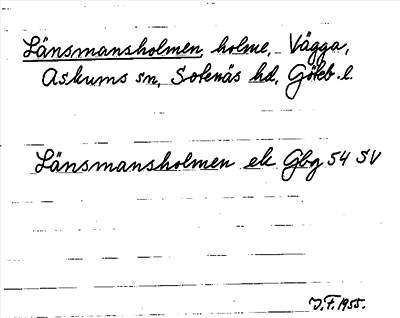 Länsmansholmen, holme, Vägga,
Askums sn, Sotenäs hd, Göteb. l.
Länsmansholmen ek Gbg 54 SV
J.F. 1955.